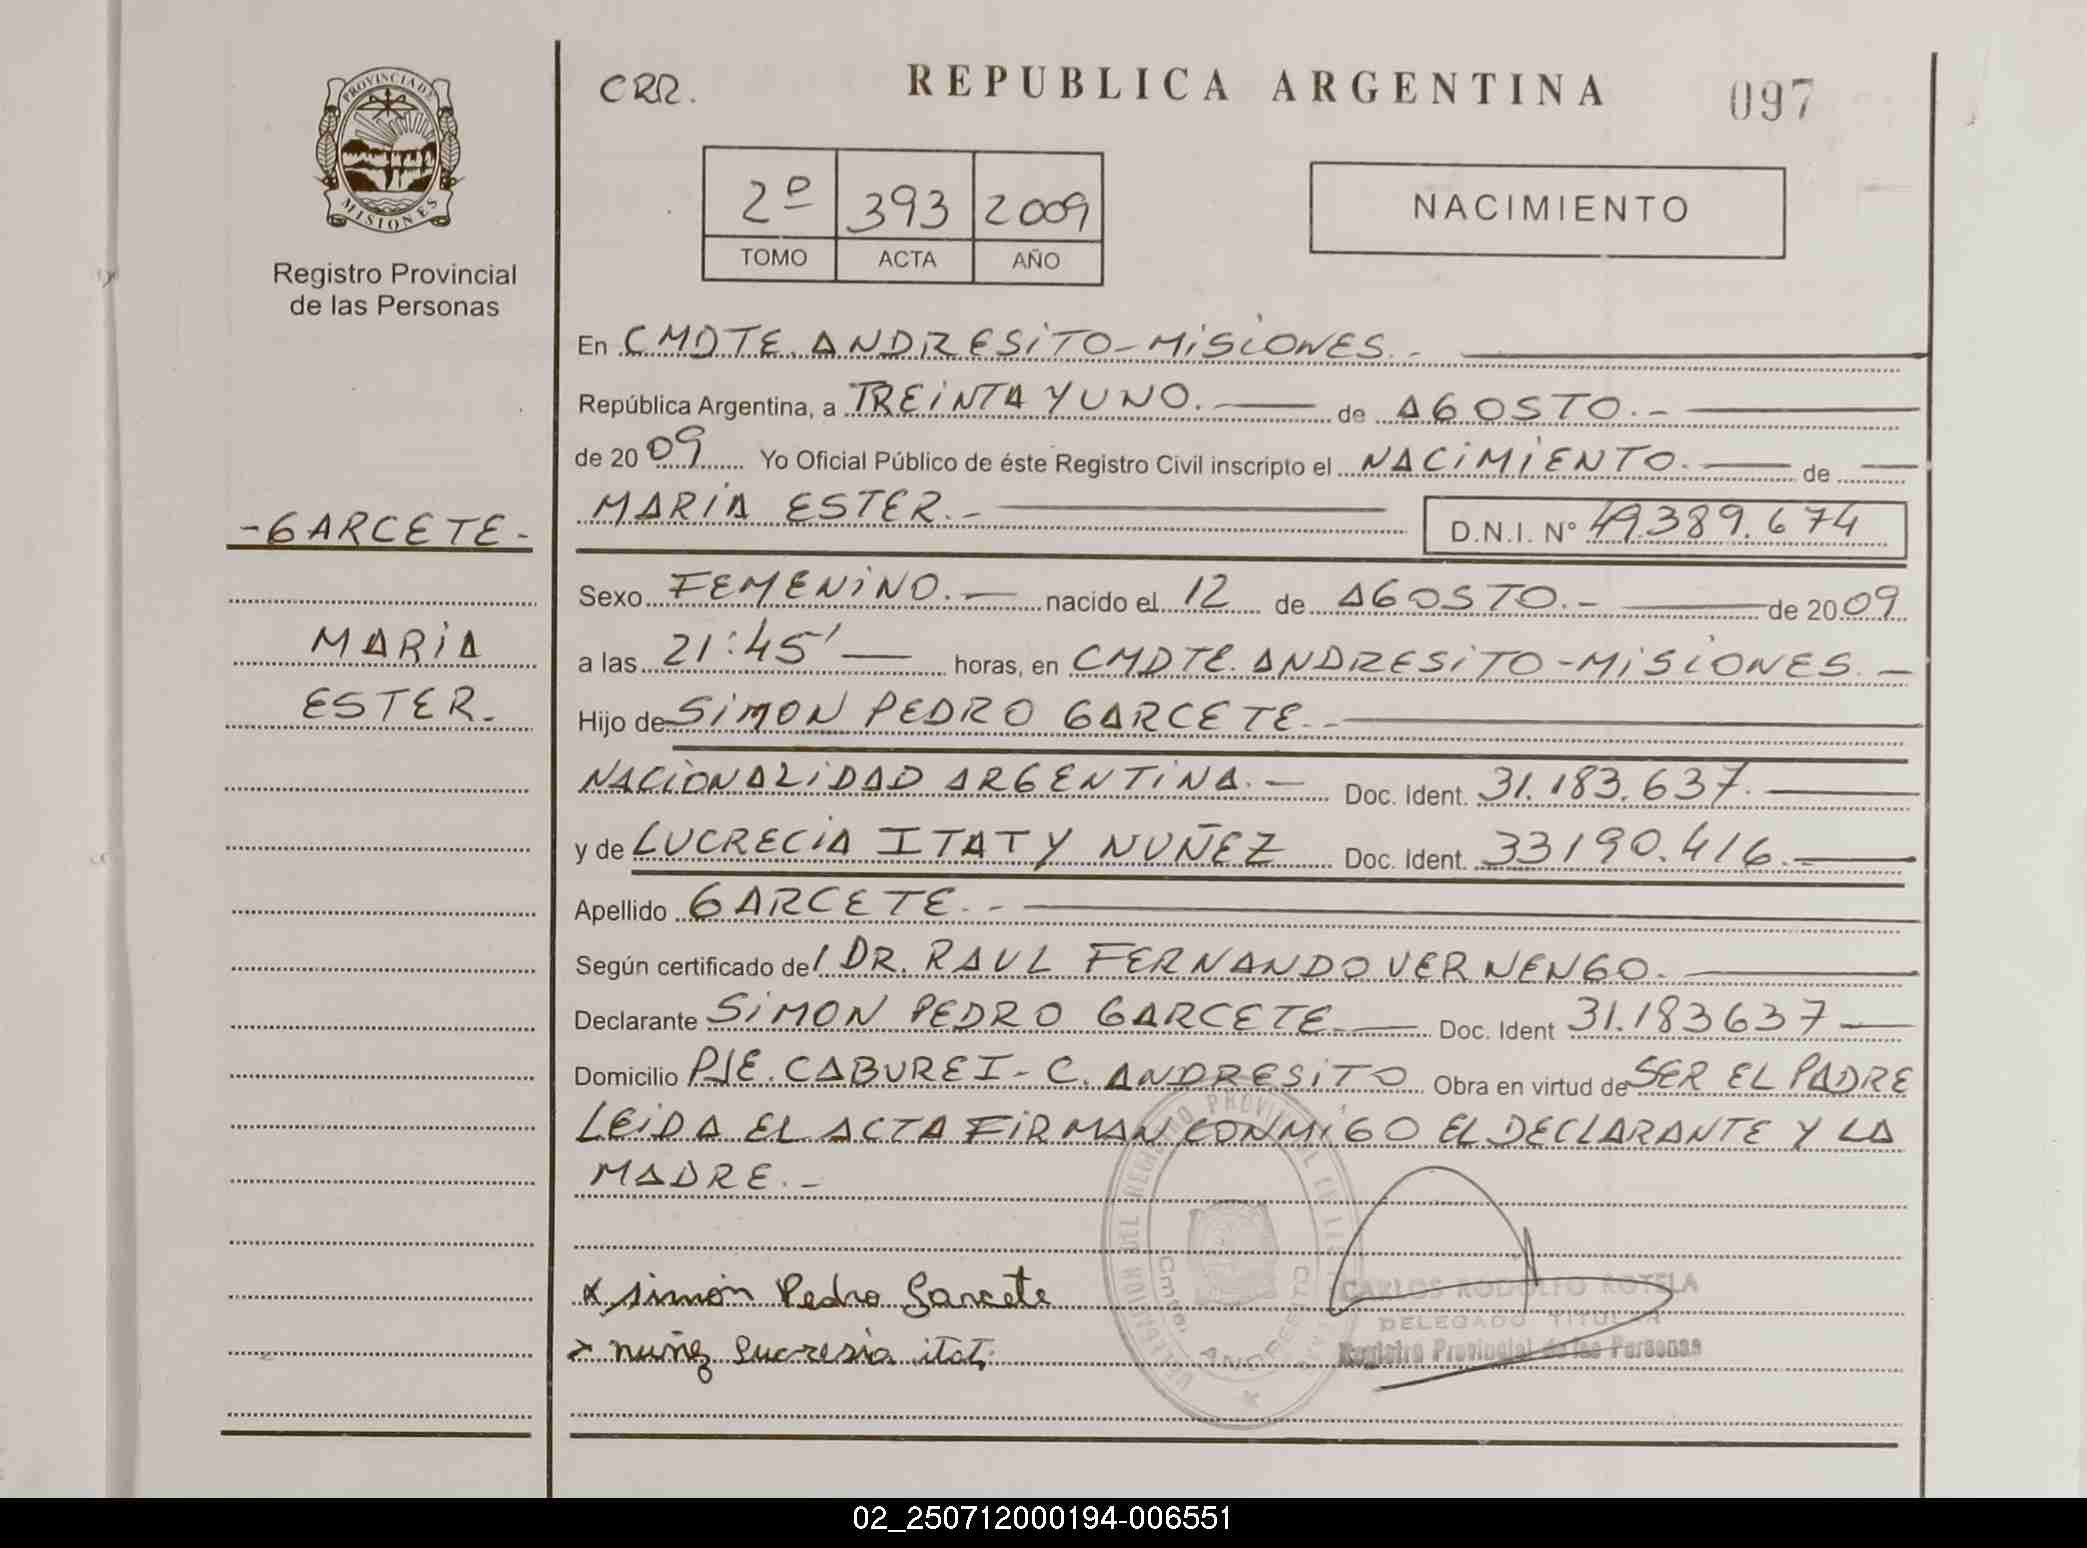 CRR.
REPUBLICA ARGENTINA
097
PROVINCIA DE
MISIONES
Registro Provincial
de las Personas
2º 393 2009
TOMO ACTA AÑO
NACIMIENTO
En CMDTE. ANDRESITO-MISIONES.-
República Argentina, a TREINTA Y UNO. de AGOSTO.-
de 2009 Yo Oficial Público de éste Registro Civil inscripto el NACIMIENTO. de
MARIA ESTER.- D.N.I. Nº 49.389.674
-GARCETE-
MARIA
ESTER.-
Sexo FEMENINO.- nacido el 12 de AGOSTO.- de 2009
a las 21:45' horas, en CMDTE. ANDRESITO-MISIONES.-
Hijo de SIMON PEDRO GARCETE.-
NACIONALIDAD ARGENTINA.- Doc. Ident. 31.183.637.
y de LUCRECIA ITATY NUÑEZ Doc. Ident. 33190.416.-
Apellido GARCETE.-
Según certificado de/ DR. RAUL FERNANDO VERNENGO.
Declarante SIMON PEDRO GARCETE. Doc. Ident 31.183637
Domicilio PJE. CABUREI-C. ANDRESITO Obra en virtud de SER EL PADRE
LEIDA EL ACTA FIRMAN CONMIGO EL DECLARANTE Y LA
MADRE.-
x simón Pedro Garcete
nuñez Lucresia itati
CARLOS RODOLFO ROTELA
DELEGADO TITULAR
Registro Provincial de las Personas
02_250712000194-006551